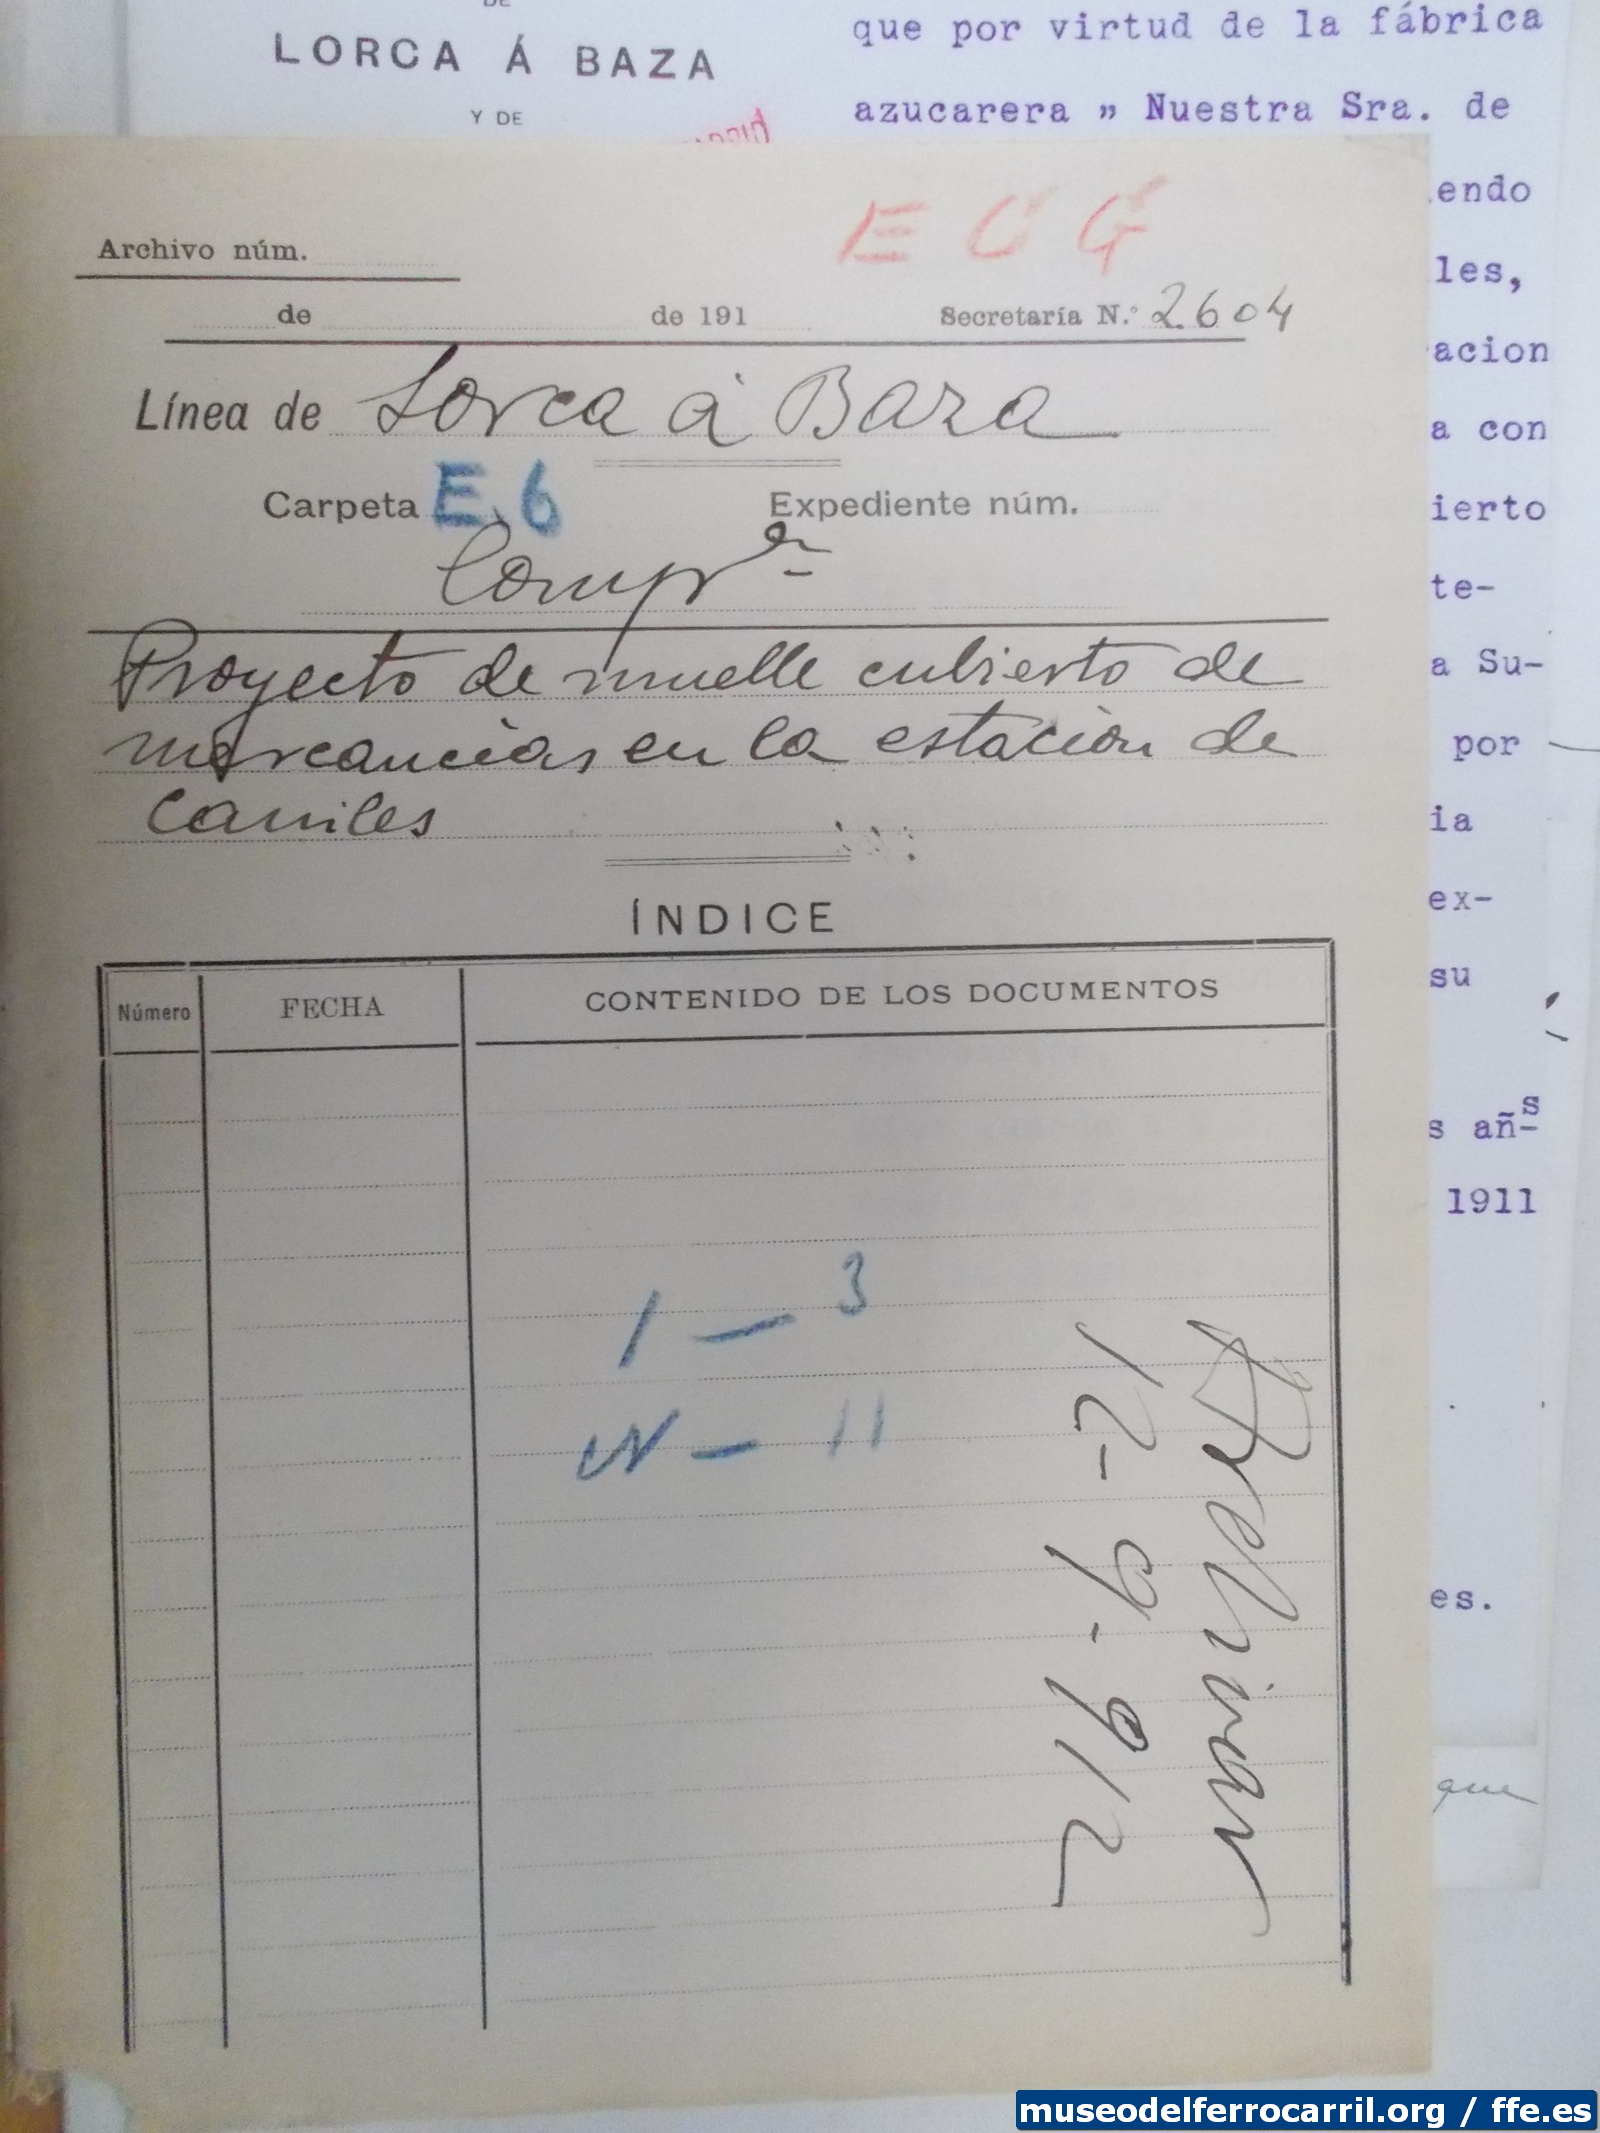 DE
LORCA Á BAZA
Y DE
que por virtud de la fábrica
azucarera „ Nuestra Sra. de
endo
les,
acion
a con
ierto
te-
a Su-
por
ia
ex-
su
s añs
1911
es.
que
E C G
Archivo núm.
de de 191 Secretaría N.° 2604
Línea de Lorca á Baza
Carpeta E, 6 Expediente núm.
Proyecto de muelle cubierto de
mercancias en la estación de
Caniles
ÍNDICE
Número FECHA CONTENIDO DE LOS DOCUMENTOS
1 — 3
N — 11
Archivar
12-9-912
museodelferrocarril.org / ffe.es